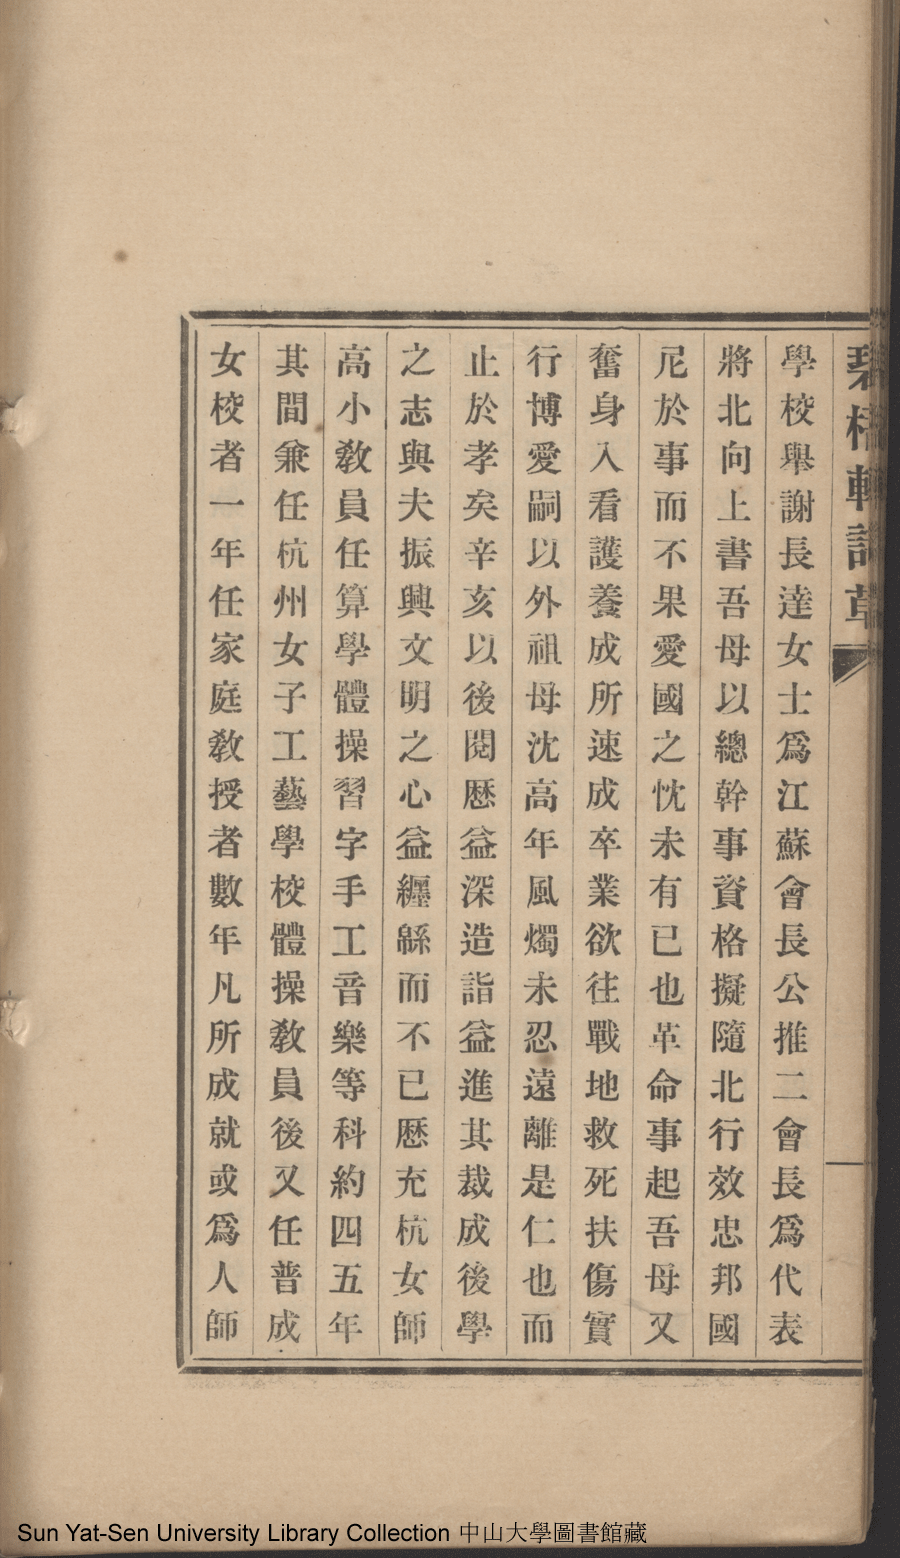 學校舉謝長達女士爲江蘇會長公推二會長爲代表
將北向上書吾母以總幹事資格擬隨北行效忠邦國
尼於事而不果愛國之忱未有已也革命事起吾母又
奮身入看護養成所速成卒業欲往戰地救死扶傷實
行博愛嗣以外祖母沈高年風燭未忍遠離是仁也而
止於孝矣辛亥以後閱歷益深造詣益進其裁成後學
之志與夫振興文明之心益纏緜而不已歷充杭女師
高小敎員任算學體操習字手工音樂等科約四五年
其間兼任杭州女子工藝學校體操敎員後又任普成
女校者一年任家庭敎授者數年凡所成就或爲人師
Sun Yat-Sen University Library Collection 中山大學圖書館藏